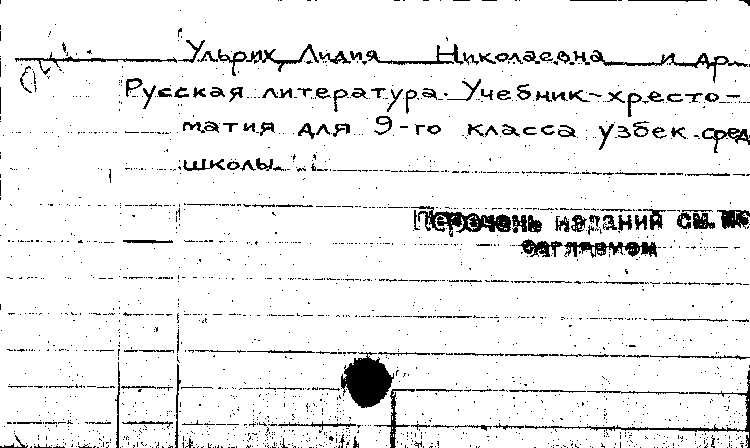 Ульрих, Лидия Николаевна и др
Русская литература. Учебник-хресто-
матия для 9-го класса узбек. сред
школы.
Перечень изданий см.
заглавием